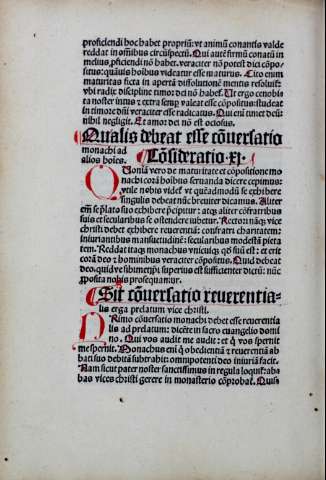 proficiendi hoc habet propriũ: vt animũ conantis valde
reddat in oĩnibus circũspectũ. Qui aũt firmũ conatũ in
melius ꝓficiendi nõ habet. veraciter nõ potest dici cõpo⸗
situs: quãuis hoĩbus videatur esse maturus. Cito enim
maturitas ficta in apertã dissolutionẽ mentis resoluit᷑:
vbi radix discipline timor dei nõ habet᷑. Ut ergo cenobi⸗
ta noster intus ⁊ extra semꝑ valeat esse cõpositus: studeat
in timore dñi veraciter esse radicatus. Qui eñi timet deũ:
nihil negligit. Et amor dei nõ est ociosus.
¶ Qualis debeat esse cõuersatio
monachi ad
alios hoĩes. ¶ Cõsideratio .xj.
Quoniã vero de maturitate et cõpositione mo⸗
nachi corã hoĩbus seruanda dicere cepimus:
vtile nobis videt᷑ vt quẽadmodũ se exhibere
singulis debeat nũc breuiter dicamus. Aliter
em̃ se p̃lato suo exhibere p̃cipitur: atqꝫ aliter cõfratribus
suis et secularibus se ostendere iubetur. Rectori nãqꝫ vice
christi debet exhibere reuerentiã: confratri charitatem:
iniuriantibus mansuetudinẽ: secularibus modestã pieta
tem. Reddat itaqꝫ monachus vnicuiqꝫ qđ suũ est: ⁊ erit
corã deo ⁊ hominibus veraciter cõpositus. Quid debeat
deo. quidve sibimetip̃i superius est sufficienter dictũ: nũc
ꝓposita nobis prosequamur.
¶ Sit cõuersatio reuerentia⸗
lis erga prelatum vice christi.
Primo cõuersatio monachi debet esse reuerentia
lis ad prelatum: dicẽte in sacro euangelio domi
no. Qui vos audit me audit: et q̃ vos spernit
me spernit. Monachus em̃ q̃ obedientiã ⁊ reuerentiã ab
bati suo debitã subtrahit: omnipotenti deo iniuriã facit.
Nam sicut pater noster sanctissimus in regula loquit᷑: ab⸗
bas vices christi gerere in monasterio cõprobat᷑. Quis⸗